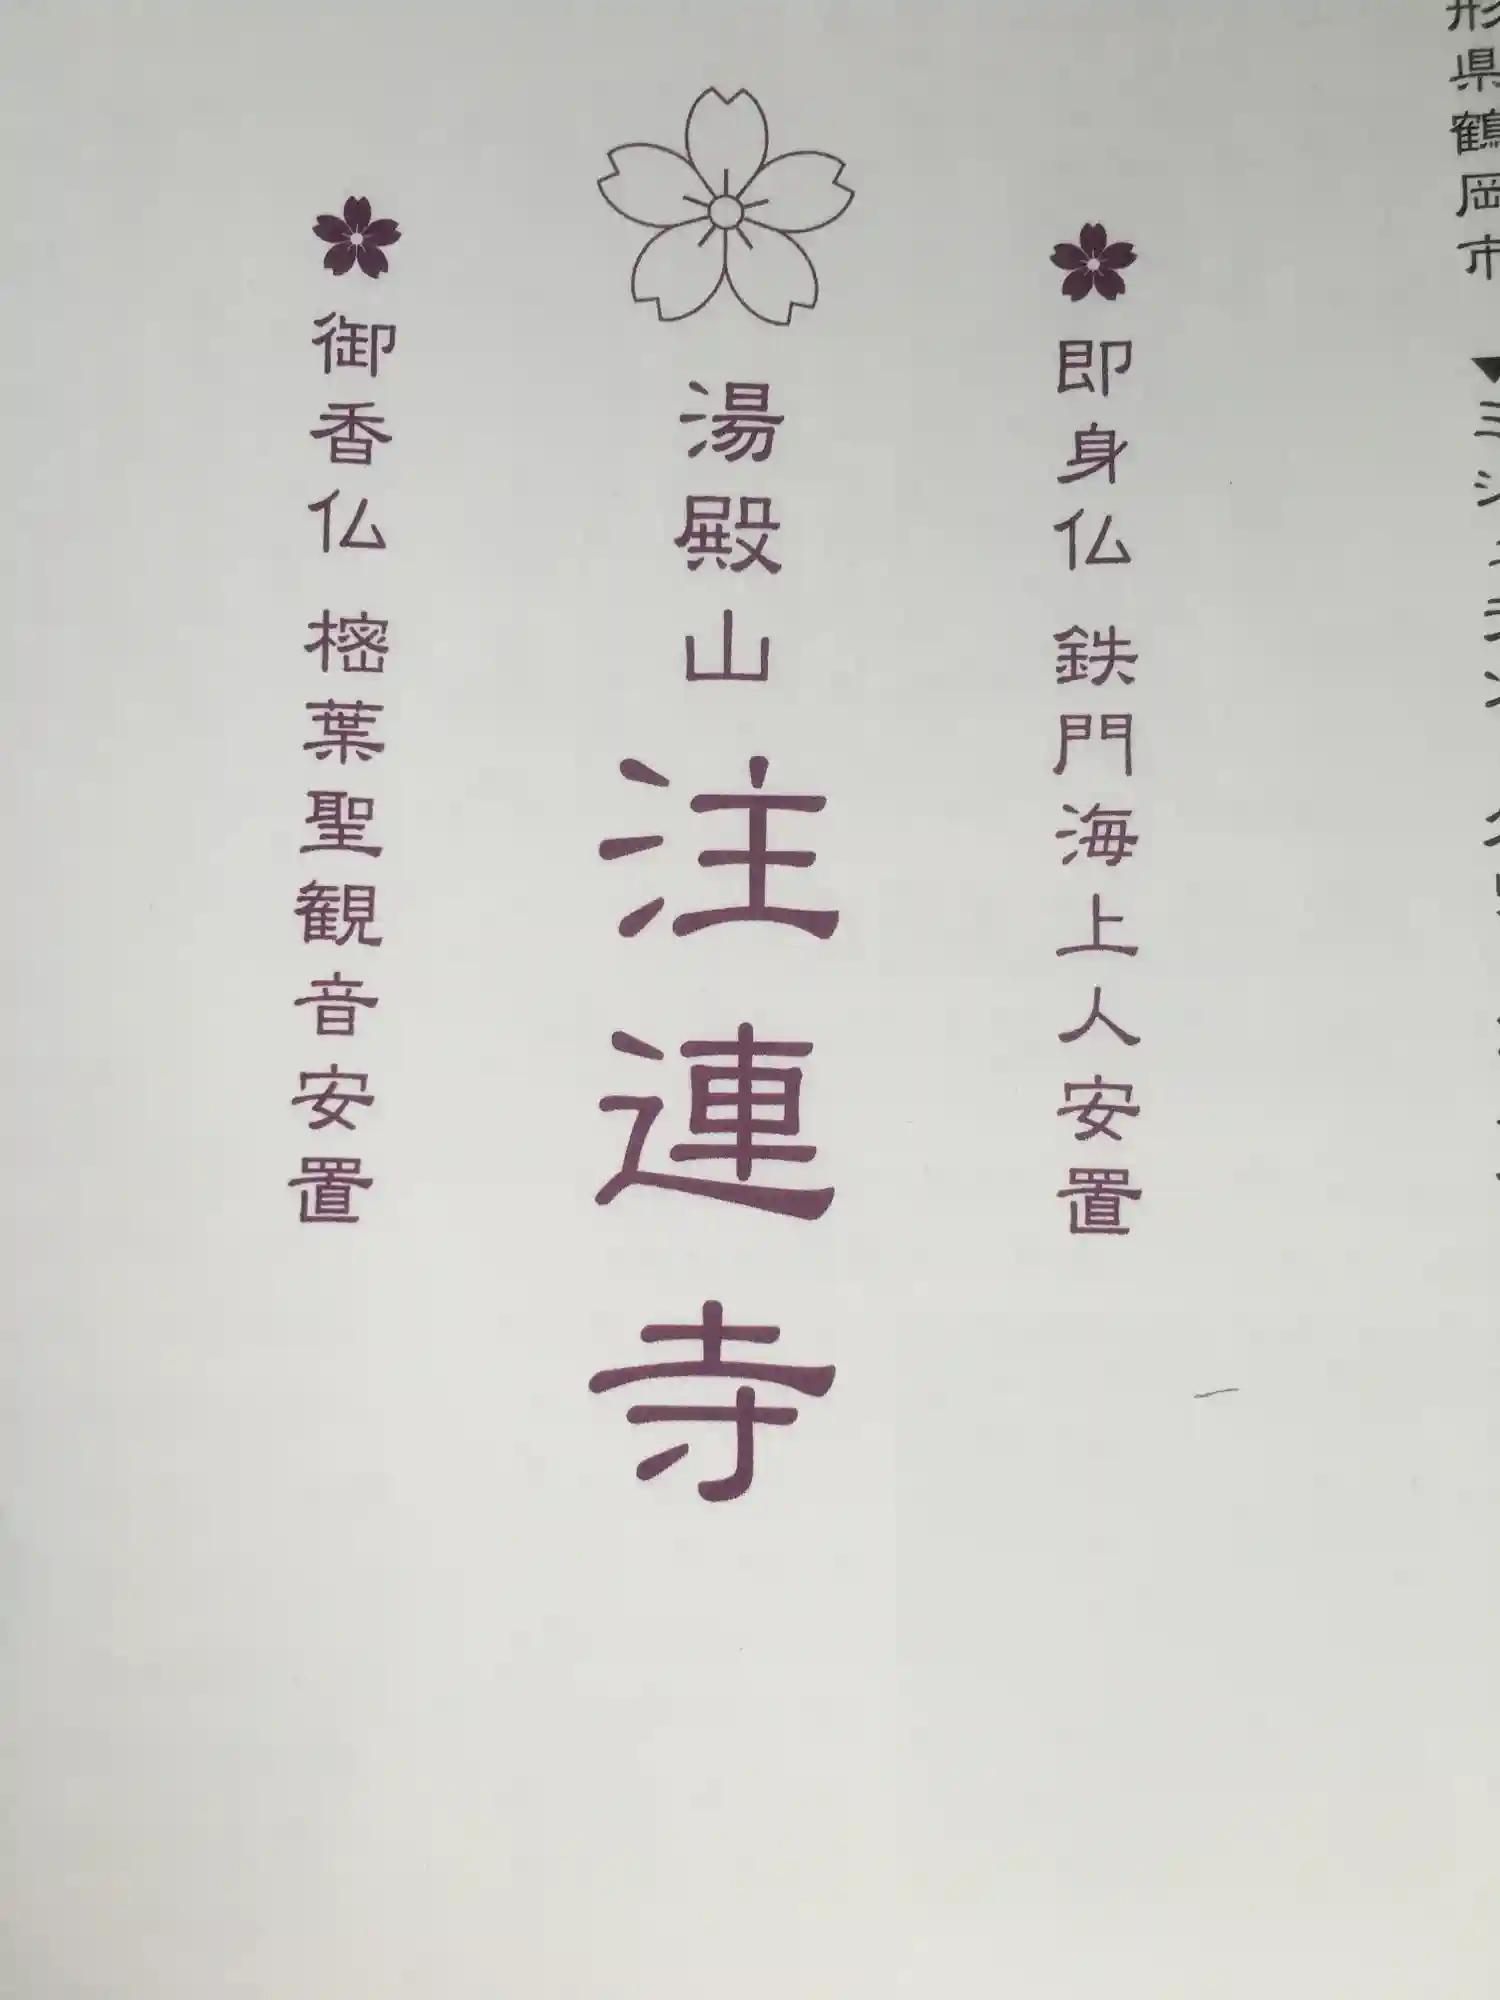 形県鶴岡市
即身仏 鉄門海上人安置
湯殿山
注連寺
御香仏 樒葉聖観音安置